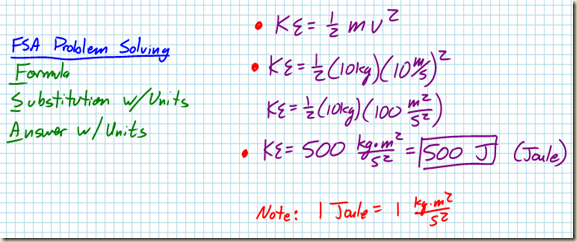 FSA Problem Solving
Formula
Substitution w/Units
Answer w/Units
• KE = 1/2 mv²
• KE = 1/2 (10kg)(10 m/s)²
KE = 1/2 (10kg)(100 m²/s²)
• KE = 500 kg•m²/s² = 500 J (Joule)
Note: 1 Joule = 1 kg•m²/s²